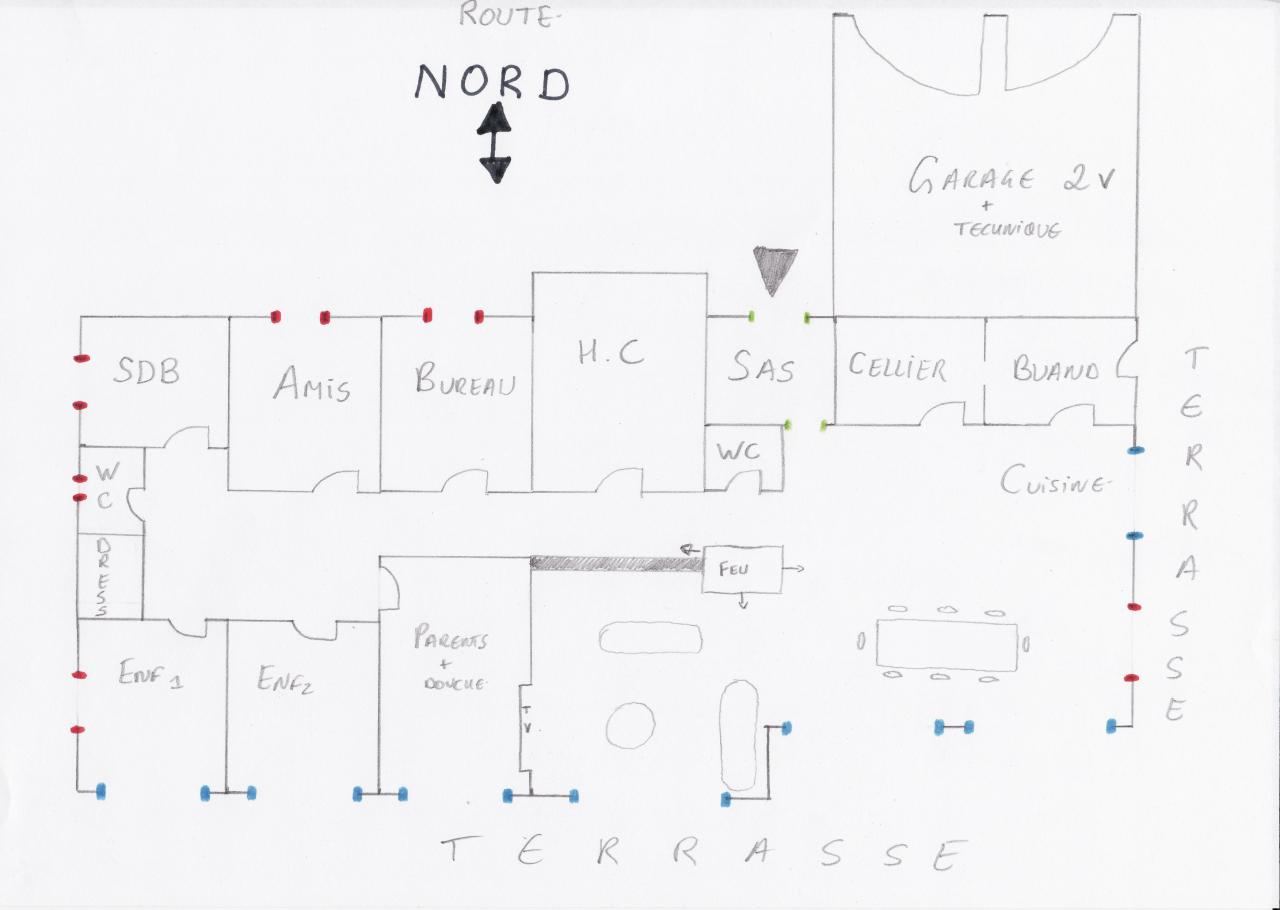 ROUTE
NORD
GARAGE 2V
+
TECHNIQUE
SDB
AMIS
BUREAU
H.C
SAS
CELLIER
BUAND
WC
WC
CUISINE
DRESS
FEU
ENF 1
ENF2
PARENTS
+
DOUCHE
TV
TERRASSE
TERRASSE